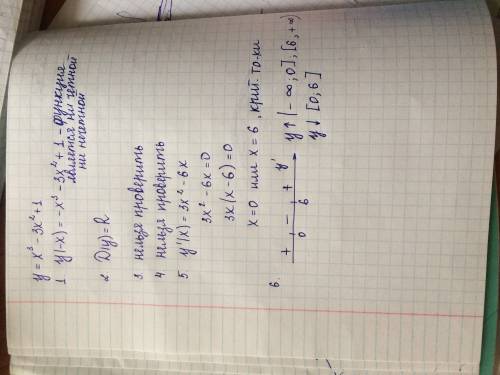 y = x³ - 3x² + 1
1 y(-x) = -x³ - 3x² + 1 - функция
является ни четной
ни нечетной
2 D(y) = R
3. нельзя проверить
4 нельзя проверить
5 y'(x) = 3x² - 6x
3x² - 6x = 0
3x(x - 6) = 0
x = 0 или x = 6, крит. то-ки
6.
+ - + y'
0 6
y ↑ (-∞; 0], [6, +∞)
y ↓ [0; 6]